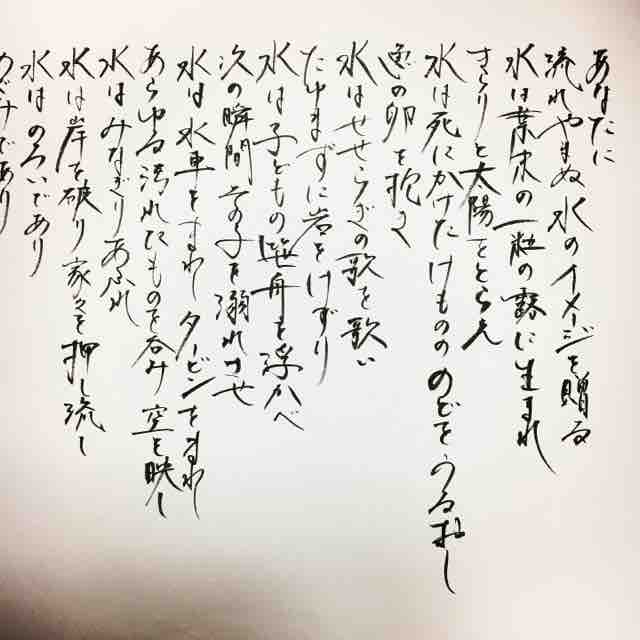 あなたに
流れやまぬ水のイメージを贈る
水は葉末の一粒の露に生まれ
きらりと太陽をとらえ
水は死にかけたけもののどをうるおし
魚の卵を抱き
水はせせらぎの歌を歌い
たゆまずに岩をけずり
水は子どもの笹舟を浮かべ
次の瞬間その子を溺れさせ
水は水車をまわしタービンをまわし
あらゆる汚れたものを呑み空を映し
水はみなぎりあふれ
水は岸を破り家々を押し流し
水はのろいであり
めぐみであり